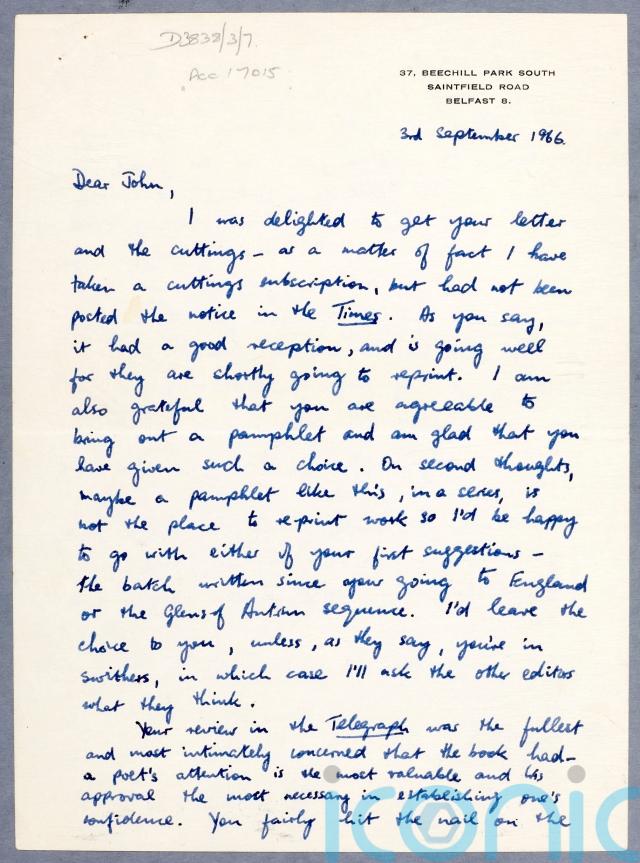 D3838/3/7.
Acc 17015
37, BEECHILL PARK SOUTH
SAINTFIELD ROAD
BELFAST 8.
3rd September 1966.
Dear John,
I was delighted to get your letter
and the cuttings – as a matter of fact I have
taken a cuttings subscription, but had not been
posted the notice in the Times. As you say,
it had a good reception, and is going well
for they are shortly going to reprint. I am
also grateful that you are agreeable to
bring out a pamphlet and am glad that you
have given such a choice. On second thoughts,
maybe a pamphlet like this, in a series, is
not the place to reprint work so I'd be happy
to go with either of your first suggestions –
the batch written since your going to England
or the Glens of Antrim sequence. I'd leave the
choice to you, unless, as they say, you're in
swithers, in which case I'll ask the other editors
what they think.
Your review in the Telegraph was the fullest
and most intimately concerned that the book had –
a poet's attention is the most valuable and his
approval the most necessary in establishing one's
confidence. You fairly hit the nail on the
iconic